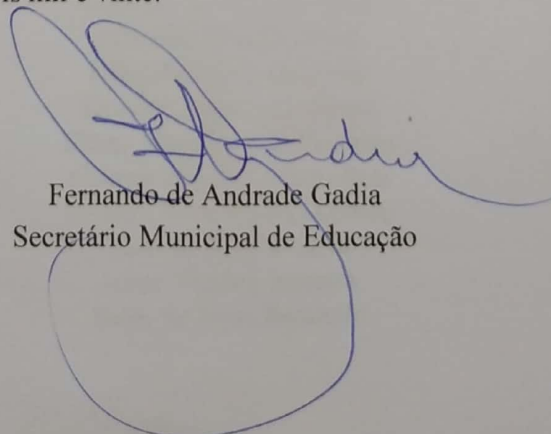 mil e vinte.
Fernando de Andrade Gadia
Secretário Municipal de Educação